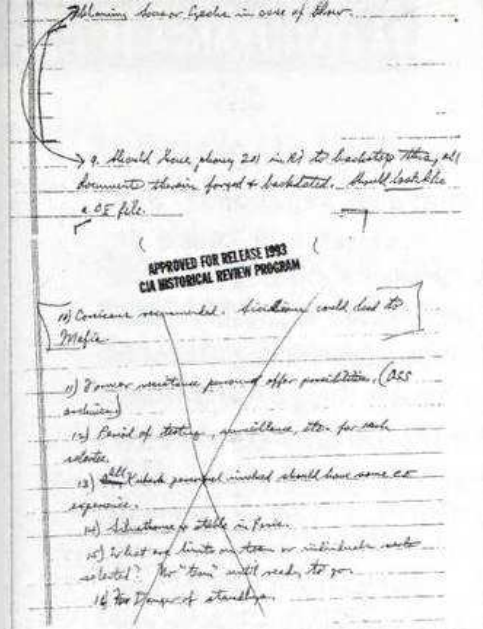 blaming Sovs or Czechs in case of blow.
9. Should have phony 201 in RI to backstop this, all
documents therein forged & backdated. Should look like
a CE file.
APPROVED FOR RELEASE 1993
CIA HISTORICAL REVIEW PROGRAM
10) Corsicans recommended. Sicilians could lead to
Mafia.
11) Former resistance personnel offer possibilities. (OSS
archives)
12) Period of testing, surveillance, etc. for each
selectee.
13) all Kubark personnel involved should have some CE
experience.
14) stable in
15) What are limits on team or individuals
selected? No "team" until ready to go.
16) Danger of standbys.